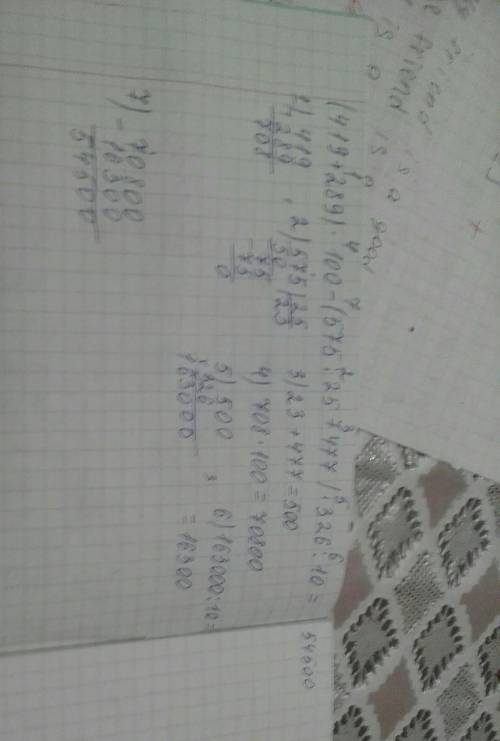 is a
friend is a
(419+289)·100-(575:25+477)·326:10=
54500
1) 419
289
708
2) 575 | 25
50 | 23
75
75
0
3) 23+477=500
4) 708·100=70800
5) 500
326
163000
6) 163000:10=
=16300
7) - 70800
16300
54500